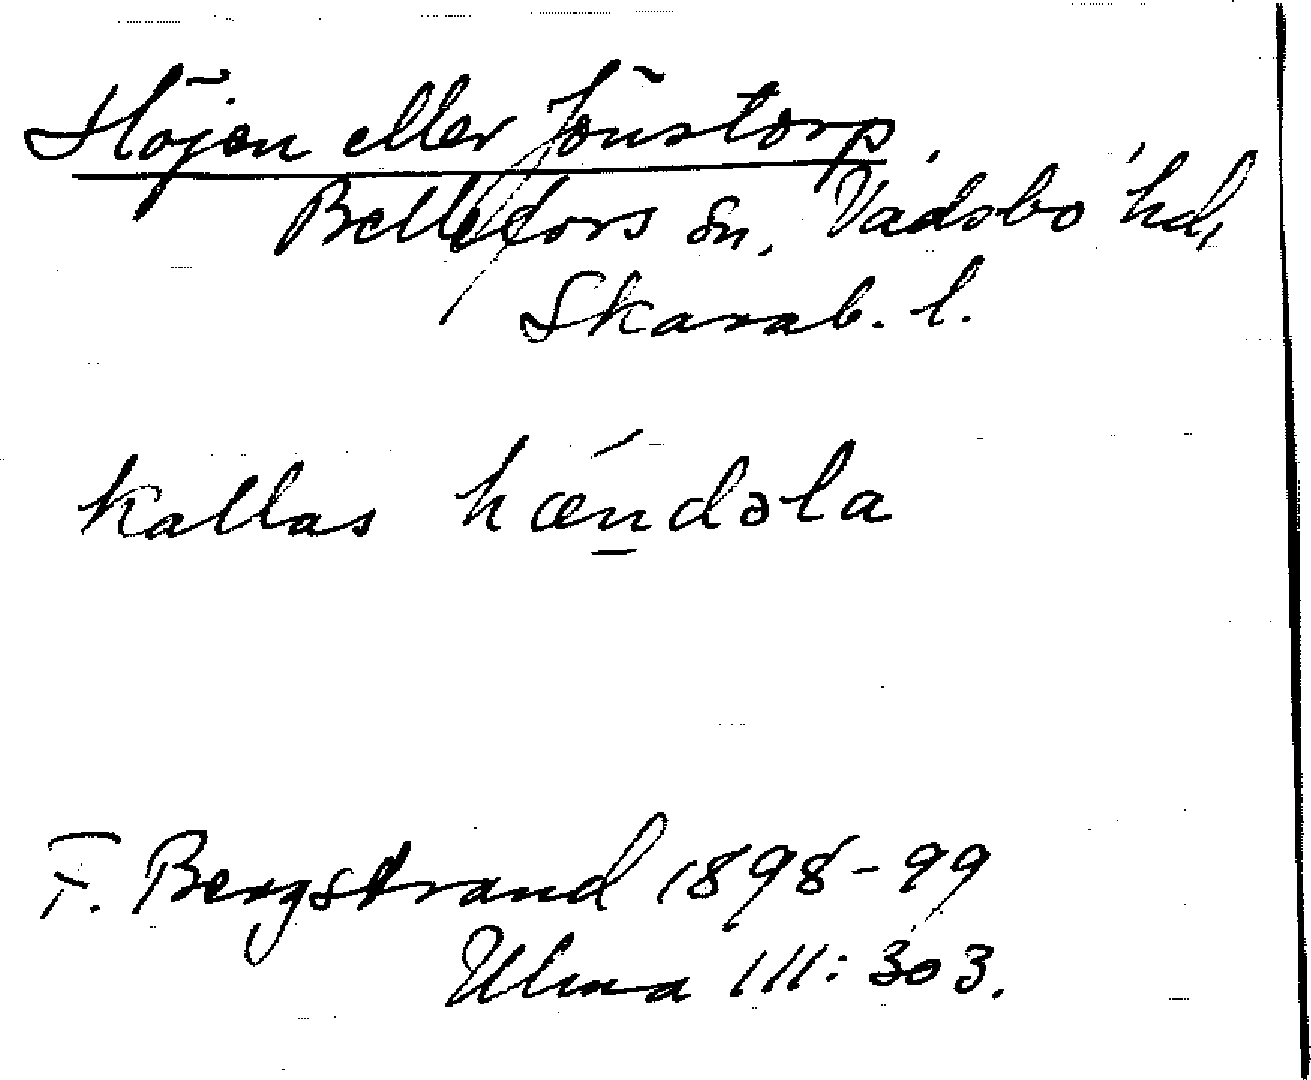 Höjen eller Jönstorp.
Bellefors sn, Vadsbo hd,
Skarab. l.
kallas hǽndəla
F. Bergstrand 1898-99
Ulma 111: 303.